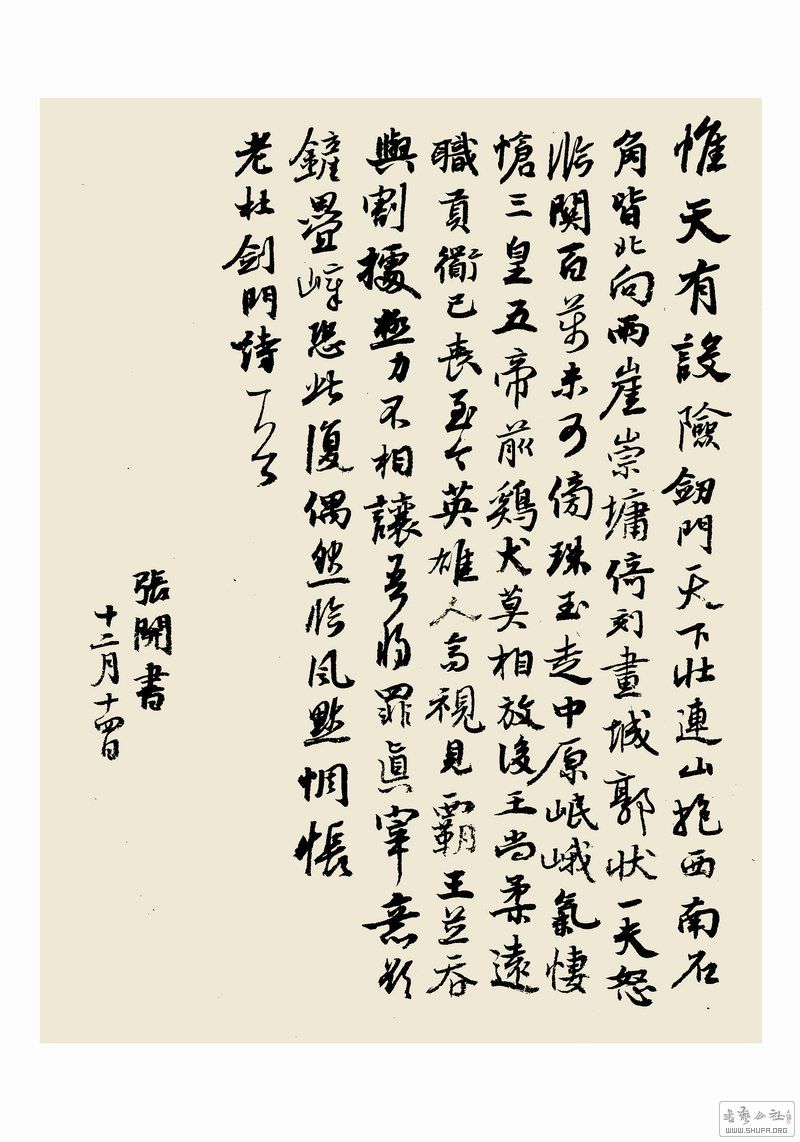 惟天有設險劒門天下壯連山抱西南石
角皆北向兩崖崇墉倚刻畫城郭狀一夫怒
臨關百萬未可傍珠玉走中原岷峨氣悽
愴三皇五帝前鷄犬莫相放後王尚柔遠
職貢衜已喪至今英雄人高視見霸王並吞
與割據極力不相讓吾將罪眞宰意欲
鏟疊嶂恐此復偶然臨風默惆悵
老杜劍門詩
張開書
十二月十四日
書藝公社
WWW.SHUFA.ORG